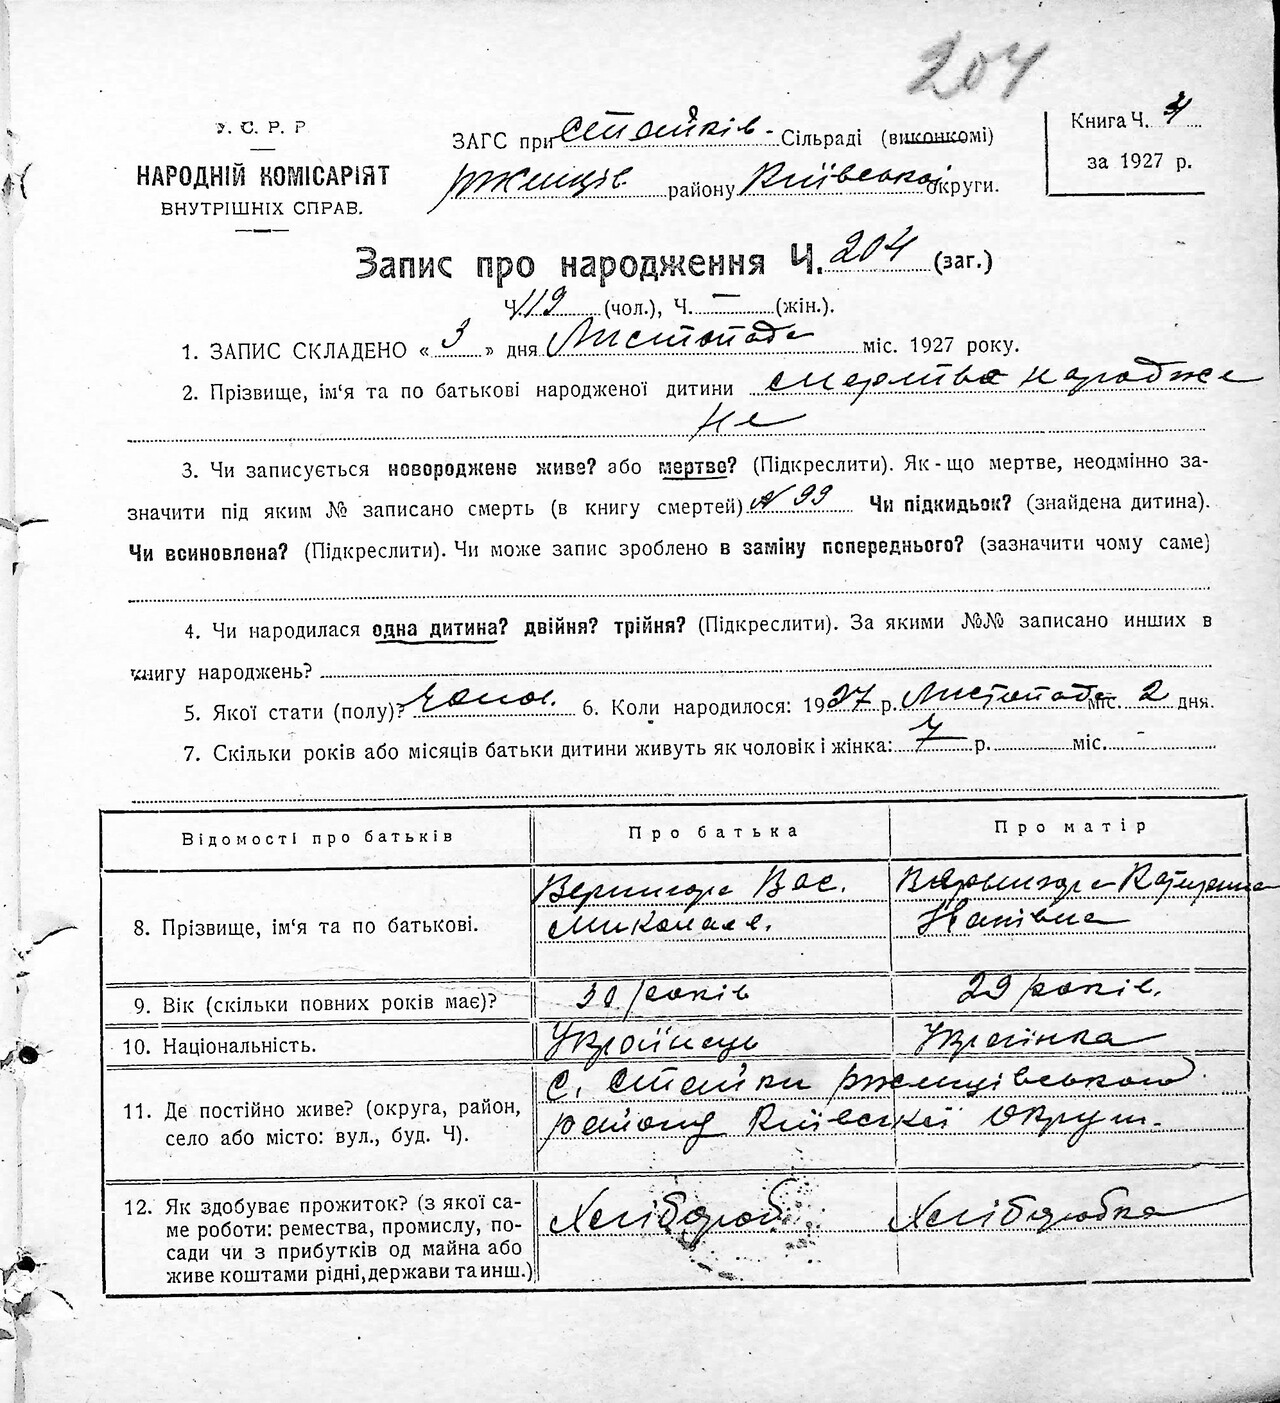 204
У. С. Р. Р
НАРОДНІЙ КОМІСАРІЯТ
ВНУТРІШНІХ СПРАВ.
ЗАГС при Стайків- Сільраді (виконкомі)
Ржищів. району Київської округи.
Книга Ч. 4
за 1927 р.
Запис про народження Ч. 204 (заг.)
Ч. 119 (чол.), Ч. — (жін.).
1. ЗАПИС СКЛАДЕНО « 3 » дня Листопада міс. 1927 року.
2. Прізвище, ім‘я та по батькові народженої дитини смертво народже
не
3. Чи записується новороджене живе? або мертве? (Підкреслити). Як-що мертве, неодмінно за-
значити під яким № записано смерть (в книгу смертей) № 99 Чи підкидьок? (знайдена дитина).
Чи всиновлена? (Підкреслити). Чи може запис зроблено в заміну попереднього? (зазначити чому саме)
4. Чи народилася одна дитина? двійня? трійня? (Підкреслити). За якими №№ записано инших в
книгу народжень?
5. Якої стати (полу)? Чолов. 6. Коли народилося: 1927 р. Листопада міс. 2 дня.
7. Скільки років або місяців батьки дитини живуть як чоловік і жінка: 7 р. міс. -
Відомості про батьків Про батька Про матір
8. Прізвище, ім‘я та по батькові.
Вернигора Вас.
Миколаєв.
Вернигора Катерина
9. Вік (скільки повних років має)? років 29 років.
10. Національність. Українець Українка
11. Де постійно живе? (округа, район,
село або місто: вул., буд. Ч).
с. Стайки Ржищівського
району Київської Округи.
12. Як здобуває прожиток? (з якої са-
ме роботи: ремества, промислу, по-
сади чи з прибутків од майна або
живе коштами рідні, держави та инш.)
Хлібороб Хліборобка